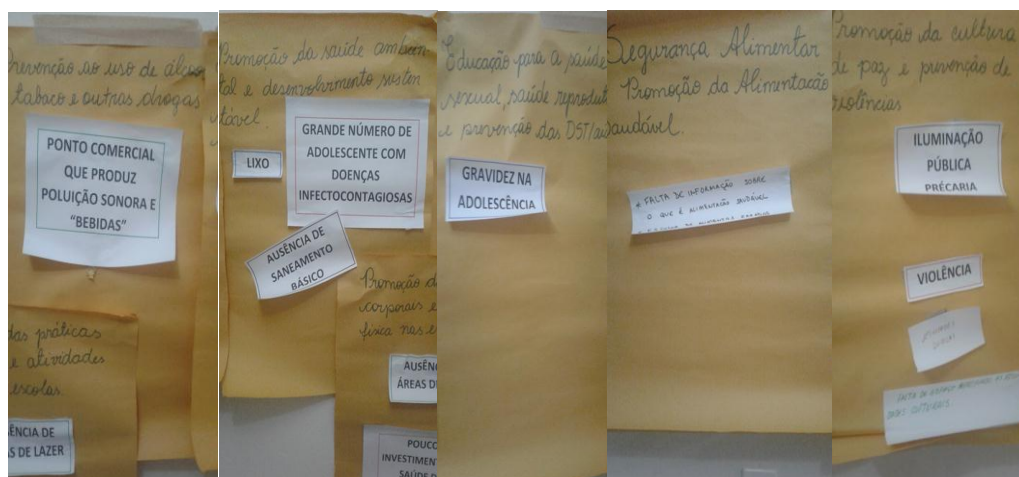 Prevenção ao uso de álcool
tabaco e outras drogas
PONTO COMERCIAL
QUE PRODUZ
POLUIÇÃO SONORA E
“BEBIDAS”
das práticas
e atividades
escolas.
ÊNCIA DE
S DE LAZER
Promoção da saúde ambien
tal e desenvolvimento susten
tável.
LIXO
GRANDE NÚMERO DE
ADOLESCENTE COM
DOENÇAS
INFECTOCONTAGIOSAS
AUSÊNCIA DE
SANEAMENTO
BÁSICO
Promoção d
corporais e
física nas e
AUSÊN
ÁREAS D
POUCO
INVESTIMEN
SAÚDE
Educação para a saúde
sexual, saúde reprodut
e prevenção das DST/au
GRAVIDEZ NA
ADOLESCÊNCIA
Segurança Alimentar
Promoção da Alimentação
saudável.
* FALTA DE INFORMAÇÃO SOBRE
O QUE É ALIMENTAÇÃO SAUDÁVEL
Promoção da cultura
de paz e prevenção de
violências
ILUMINAÇÃO
PÚBLICA
PRÉCARIA
VIOLÊNCIA
FALTA DE ESPAÇO
CULTURAIS